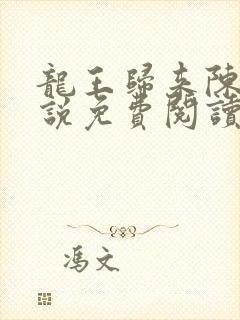 龍王歸來陳
說免費閱讀
馮文